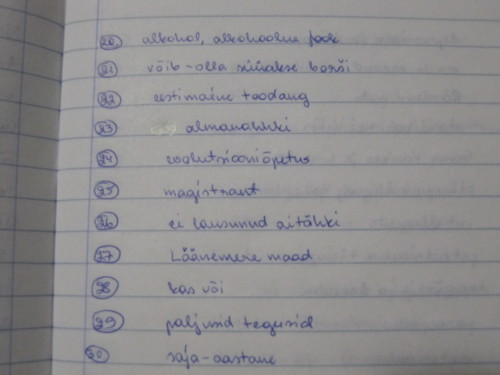 20. alkohol, alkohoolne jook
21 võib-olla süüakse
22 eestimaine toodang
23 almanahhi
24 evolutsiooniõpetus
25 magistrant
26 ei lausunud aitähki
27 Läänemere maad
28 kas või
29 paljusid tegusid
30. saja-aastane